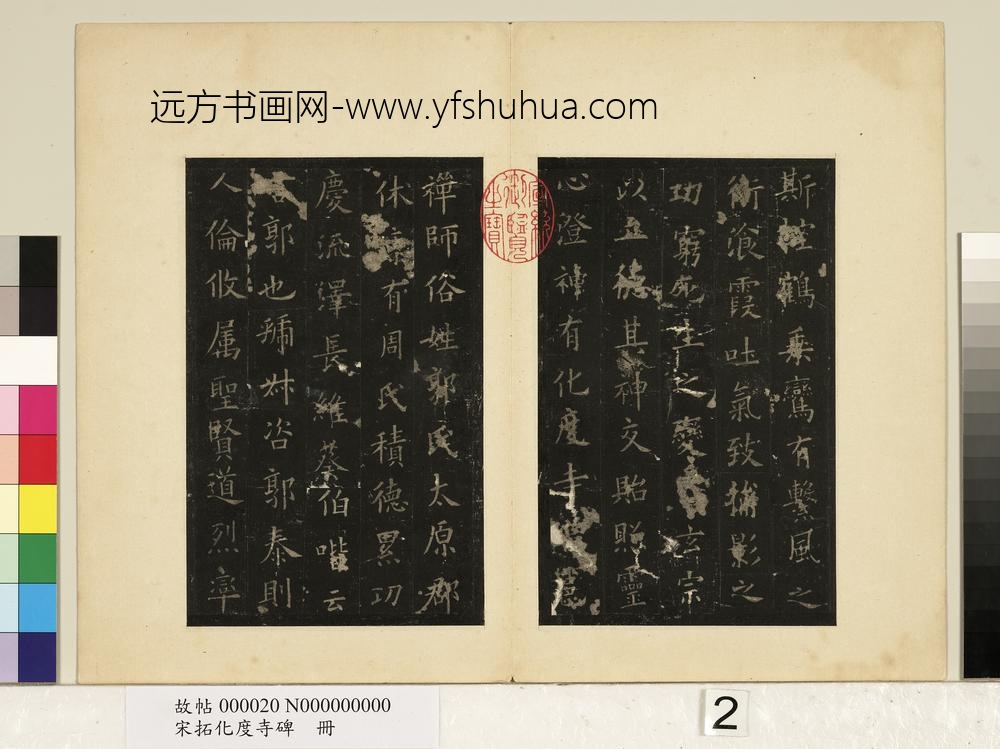 远方书画网-www.yfshuhua.com
斯控鶴乘鸞有繫風之
術飡霞吐氣致捕影之
功窮死生之變玄宗
以五德其神交貽照靈
心澄神有化度寺
禪師俗姓郭氏太原郡
休有周氏積德累功
慶流澤長維蔡伯喈云
郭也號姊咨郭泰則
人倫攸属聖賢道烈率
宣統御覽之寶
故帖 000020 N000000000
宋拓化度寺碑 冊
2